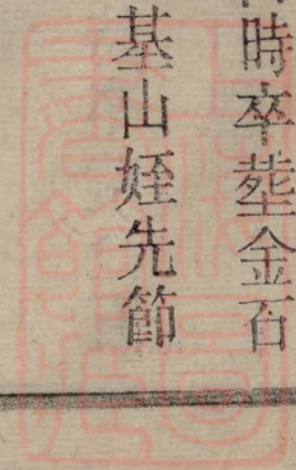 時卒塟金石
基山姪先節